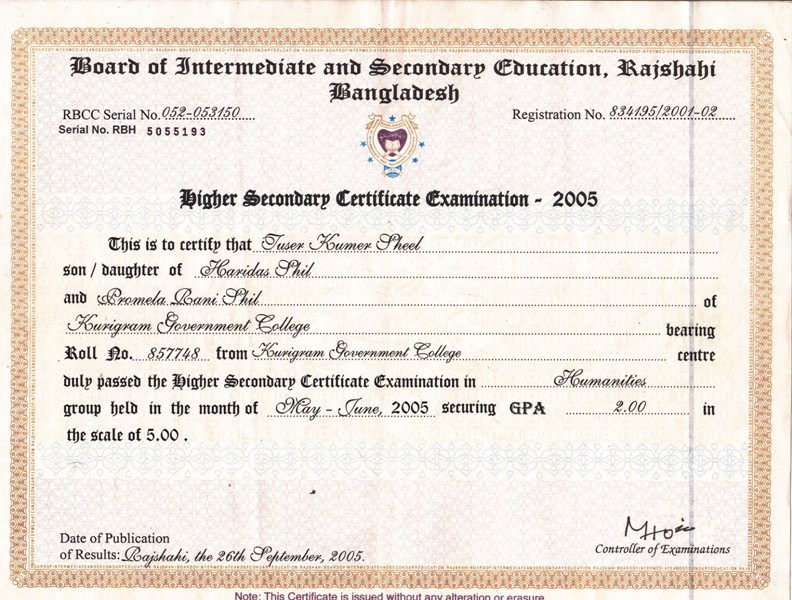 Board of Intermediate and Secondary Education, Rajshahi
Bangladesh
RBCC Serial No. 052-053150
Registration No. 834195/2001-02
Serial No. RBH 5055193
Higher Secondary Certificate Examination - 2005
This is to certify that Tuser Kumer Sheel
son / daughter of Haridas Shil
and Promela Rani Shil of
Kurigram Government College bearing
Roll No. 857748 from Kurigram Government College centre
duly passed the Higher Secondary Certificate Examination in Humanities
group held in the month of May - June, 2005 securing GPA 2.00 in
the scale of 5.00 .
Date of Publication
of Results: Rajshahi, the 26th September, 2005.
Controller of Examinations
Note: This Certificate is issued without any alteration or erasure